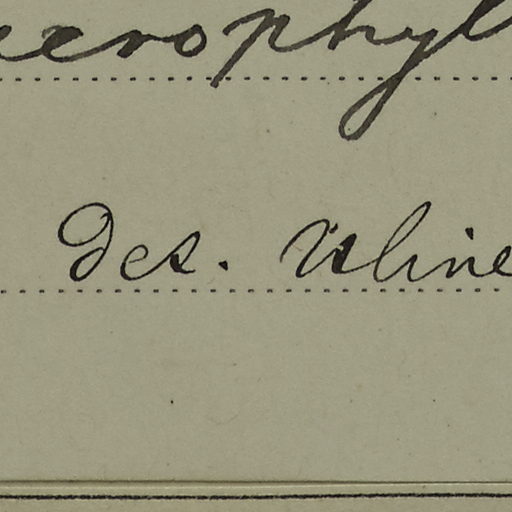 acrophyl
Des. Uline